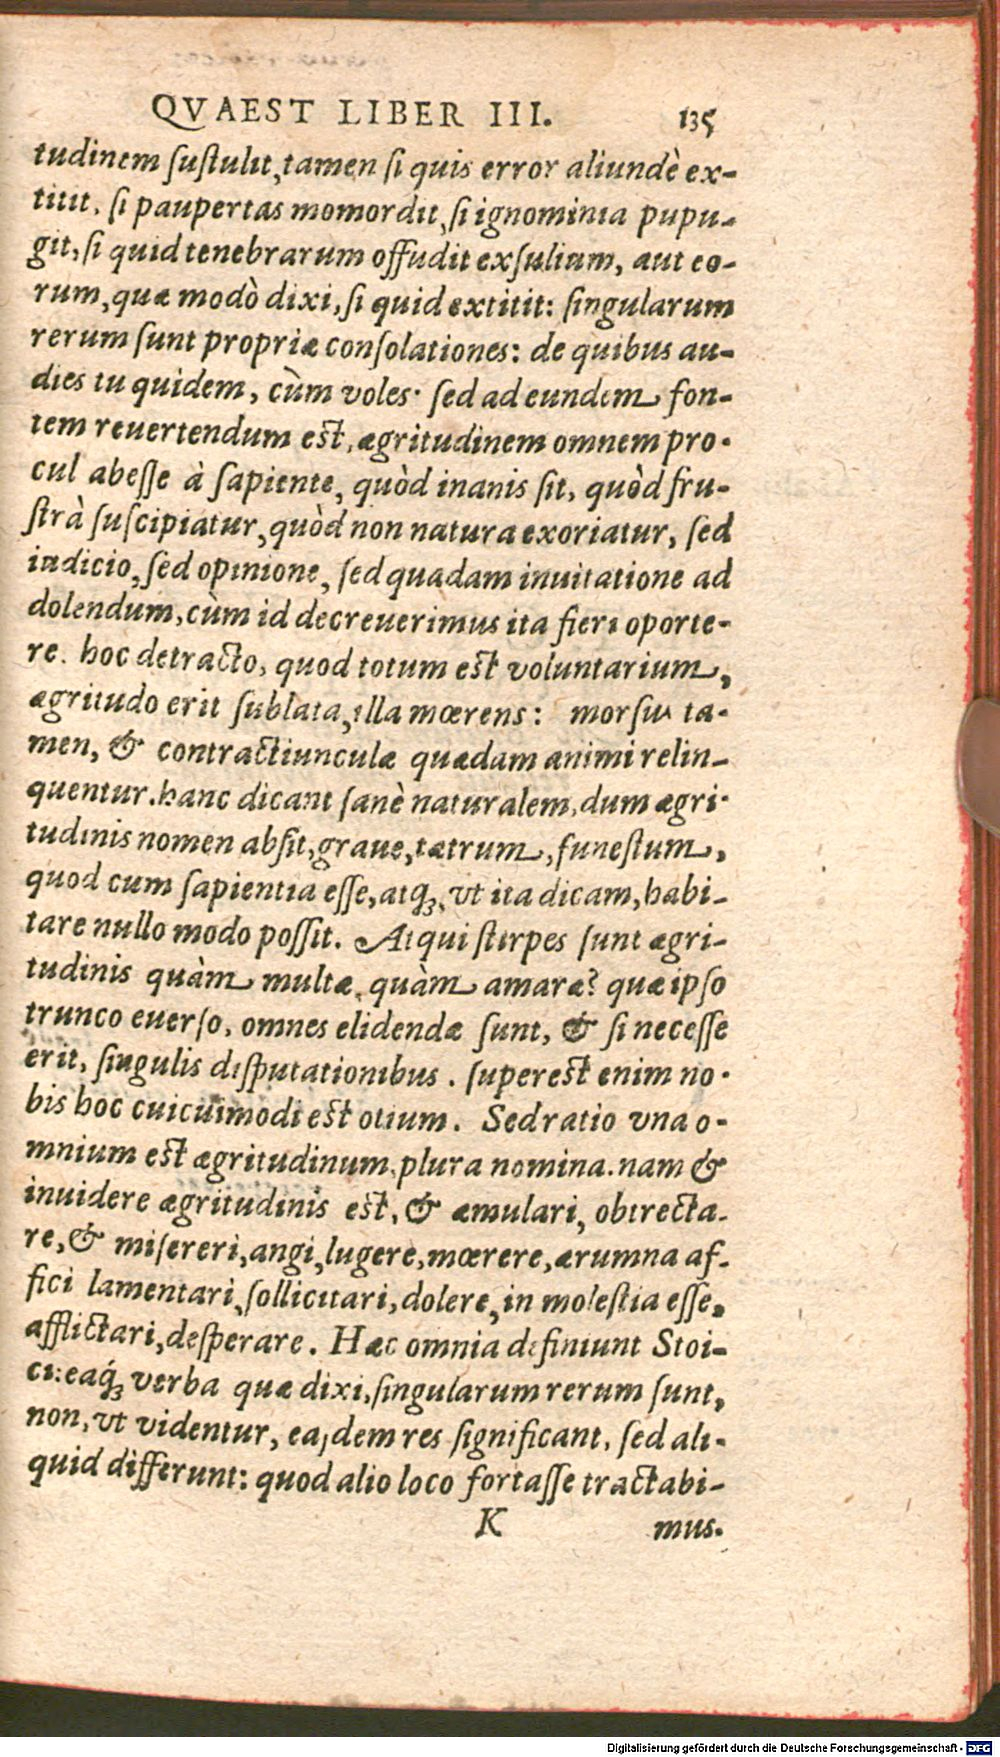 QVAEST LIBER III. 135
tudinem ſuſtulit, tamen ſi quis error aliundè ex-
titit, ſi paupertas momordit, ſi ignominia pupu-
git, ſi quid tenebrarum offudit exſulium, aut eo-
rum, quæ modò dixi, ſi quid extitit: ſingularum
rerum ſunt propriæ conſolationes: de quibus au-
dies tu quidem, cùm voles. ſed ad eundem fon-
tem reuertendum eſt, ægritudinem omnem pro-
cul abeſſe à ſapiente, quòd inanis ſit, quòd fru-
ſtrà ſuſcipiatur, quòd non natura exoriatur, ſed
iudicio, ſed opinione, ſed quadam inuitatione ad
dolendum, cùm id decreuerimus ita fieri oporte-
re. hoc detracto, quod totum eſt voluntarium,
ægritudo erit ſublata, illa mœrens: morſus ta-
men, & contractiunculæ quædam animi relin-
quentur. hanc dicant ſanè naturalem, dum ægri-
tudinis nomen abſit, graue, tætrum, funeſtum,
quod cum ſapientia eſſe, atq́ꝫ, vt ita dicam, habi-
tare nullo modo poſſit. At qui ſtirpes ſunt ægri-
tudinis quàm multæ, quàm amaræ? quæ ipſo
trunco euerſo, omnes elidendæ ſunt, & ſi neceſſe
erit, ſingulis diſputationibus. ſupereſt enim no-
bis hoc cuicuimodi eſt otium. Sed ratio vna o-
mnium eſt ægritudinum, plura nomina. nam &
inuidere ægritudinis eſt, & æmulari, obtrecta-
re, & miſereri, angi, lugere, mœrere, ærumna af-
fici lamentari, ſollicitari, dolere, in moleſtia eſſe,
afflictari, deſperare. Hæc omnia definiunt Stoi-
ci: eaq́ꝫ verba quæ dixi, ſingularum rerum ſunt,
non, vt videntur, eaſdem res ſignificant, ſed ali-
quid differunt: quod alio loco fortaſſe tractabi-
K mus.
Digitalisierung gefördert durch die Deutsche Forschungsgemeinschaft - DFG